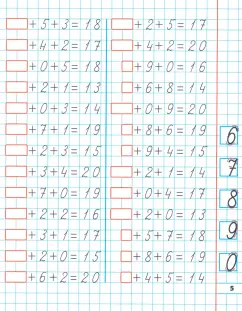 + 5 + 3 = 18
+ 4 + 2 = 17
+ 0 + 5 = 18
+ 1 + 2 = 13
+ 0 + 3 = 14
+ 7 + 1 = 19
+ 2 + 3 = 15
+ 3 + 4 = 20
+ 7 + 0 = 19
+ 2 + 2 = 16
+ 3 + 1 = 17
+ 2 + 0 = 15
+ 6 + 2 = 20
+ 2 + 5 = 17
+ 4 + 2 = 20
+ 9 + 0 = 16
+ 6 + 8 = 14
+ 0 + 9 = 20
+ 8 + 6 = 19
+ 9 + 4 = 15
+ 2 + 1 = 14
+ 0 + 4 = 17
+ 2 + 0 = 13
+ 5 + 7 = 18
+ 8 + 6 = 19
+ 4 + 5 = 14
6
7
8
9
0
5